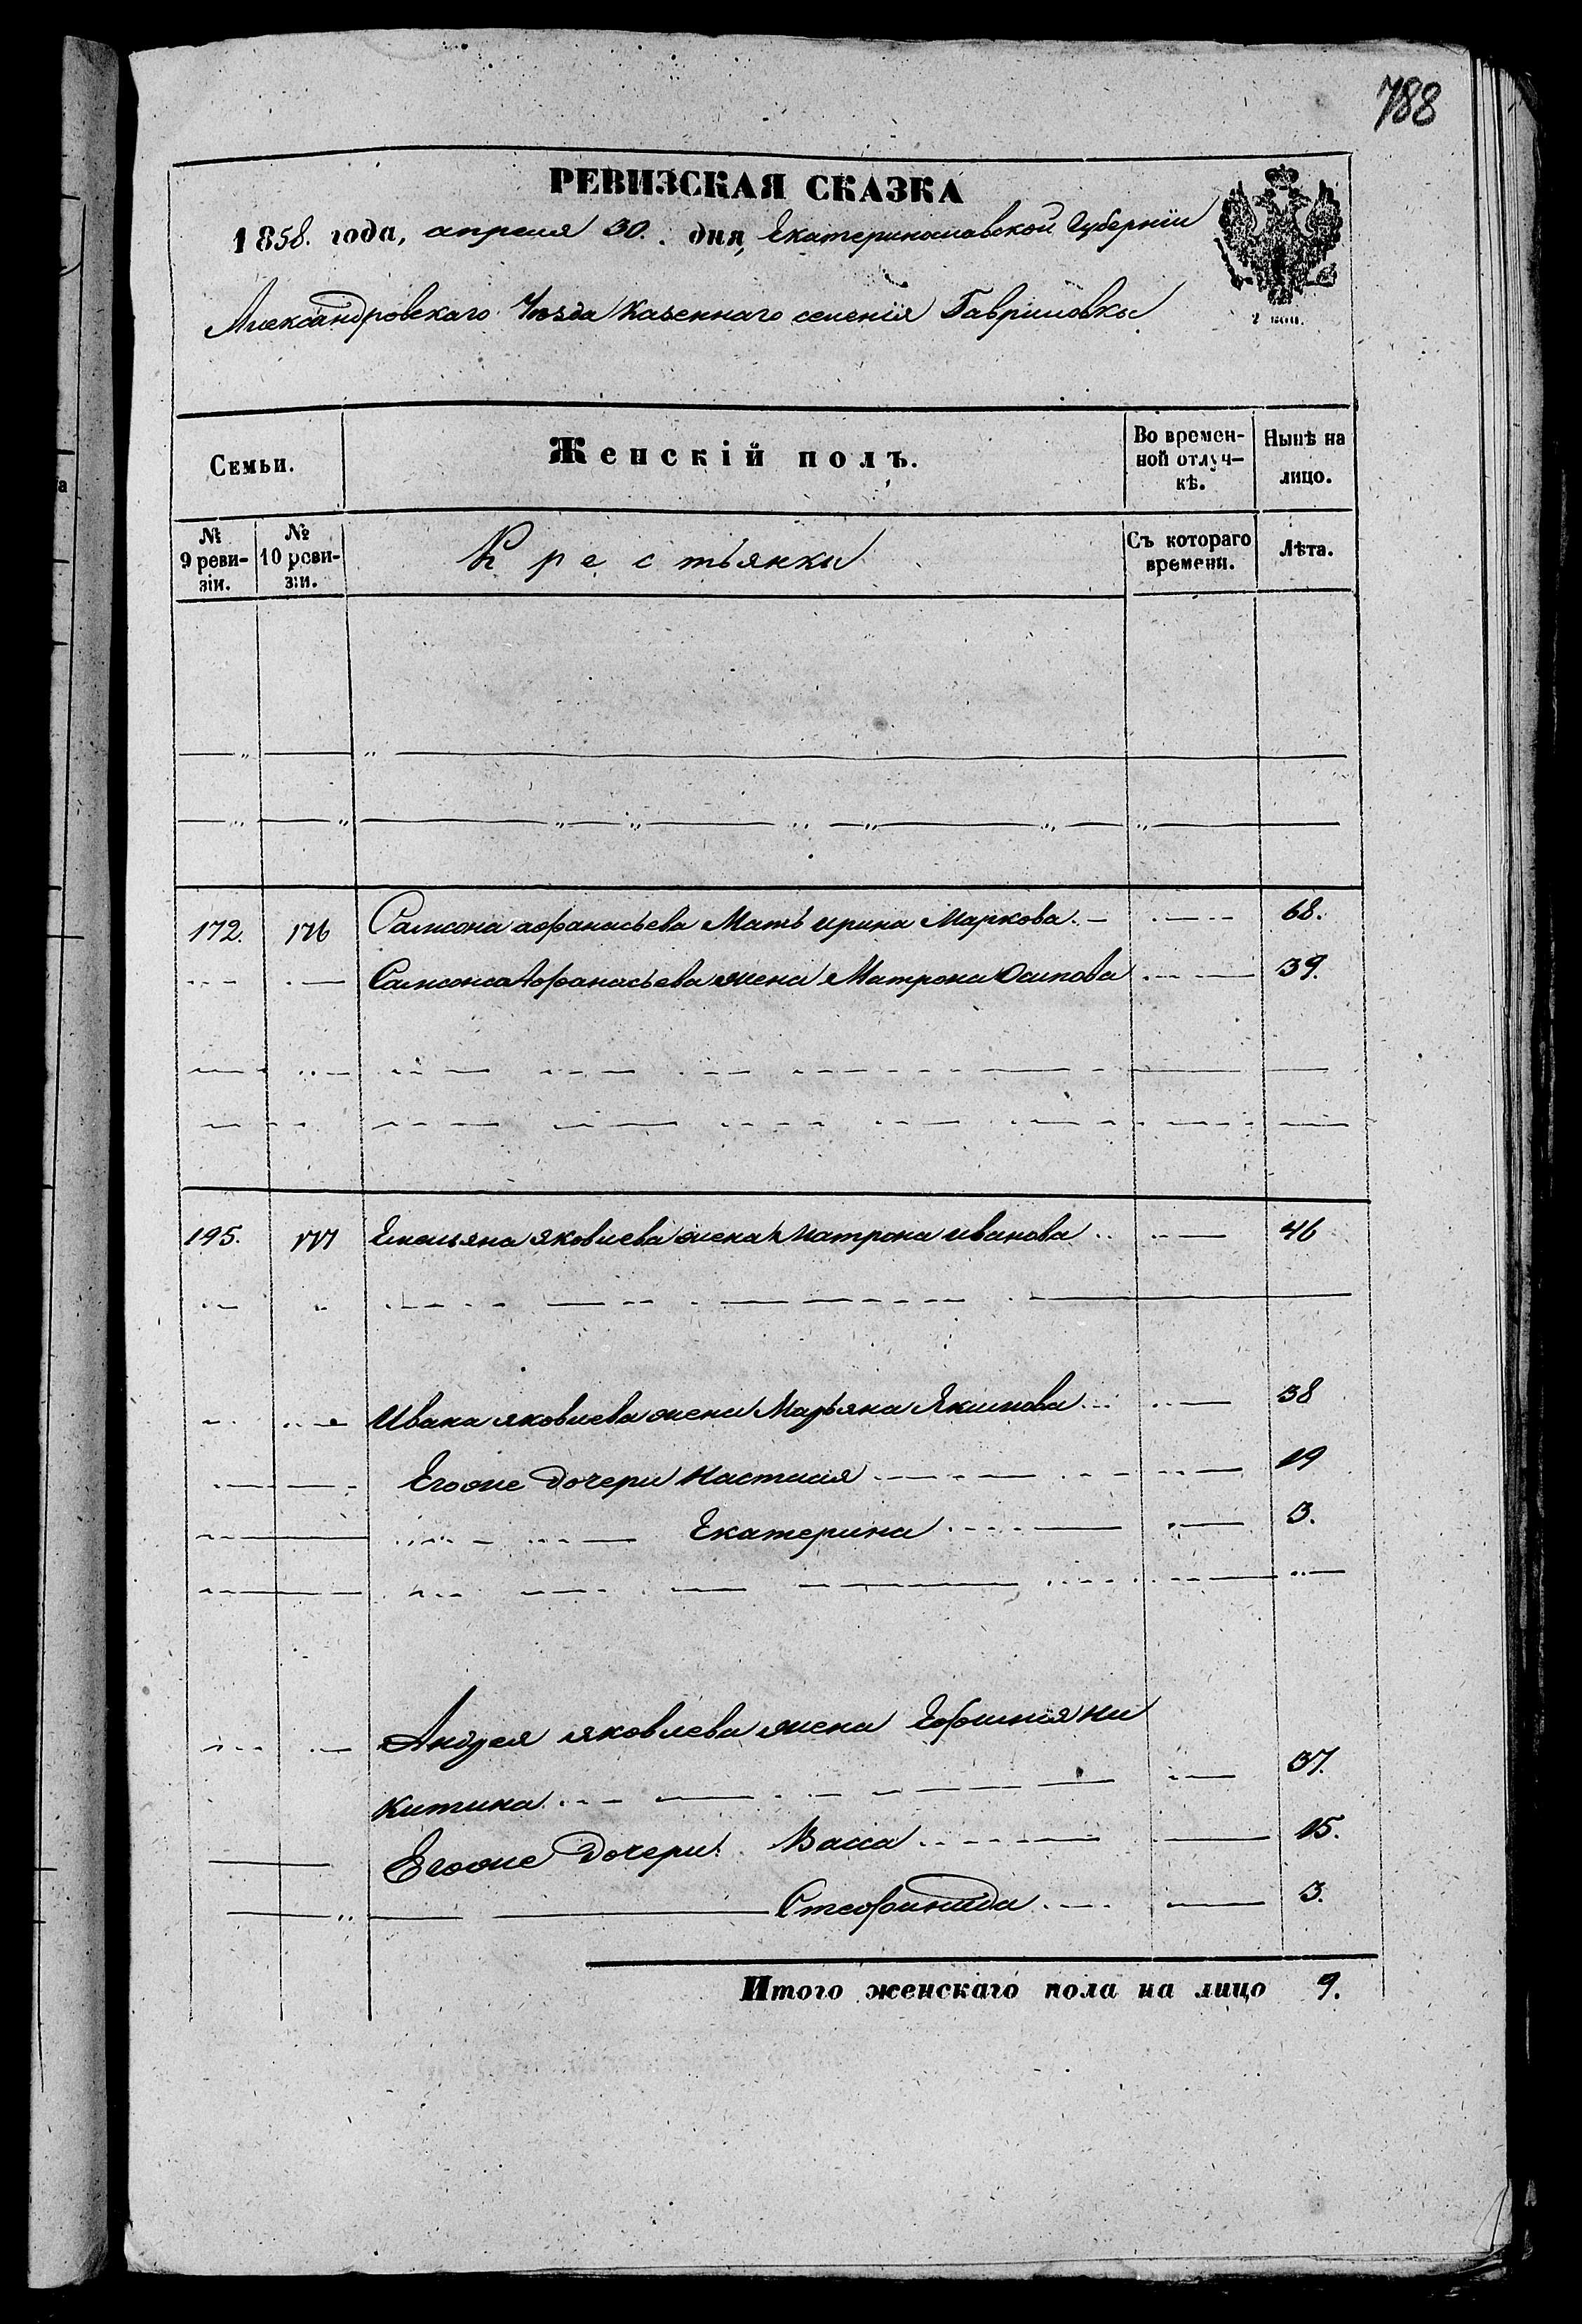 788
РЕВИЗСКАЯ СКАЗКА
1858. года, апреля 30. дня, Екатеринославской Губерніи
Александровскаго Уѣзда Казеннаго селенія Гавриловки
2 коп.
Семьи.
Женскій полъ.
Во времен-
ной отлуч-
кѣ.
Нынѣ на
лицо.
№
9 реви-
зіи.
№
10 реви-
зіи.
Крестьянки
Съ котораго
времени.
Лѣта.
172. 176 Самсона афанасьева Мать ирина Маркова. 68.
Самсона Афанасьева жена Матрона Осипова 39.
195. 177 Емельяна яковлева жена Матрона иванова 46
Ивана яковлева жена Марьяна Якимова 38
Егоже дочери Настасия 19
Екатерина 3.
Андрея яковлева жена Ефимія Ни
китина 37.
Егоже дочери Васса 15.
Стефанида 3.
Итого женскаго пола на лицо 9.